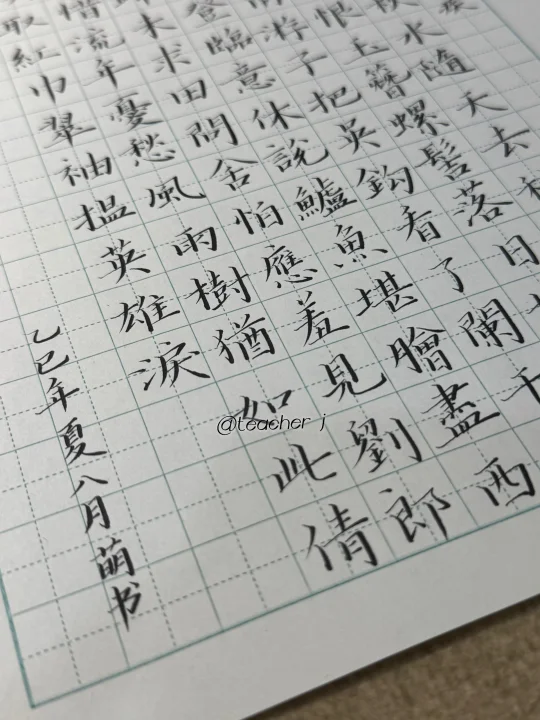 水隨天去
恨玉簪螺髻落日
游子把吳鈎看了闌干
登臨意休說鱸魚堪膾盡西
未求田問舍怕應羞見劉郎
惜流年憂愁風雨樹猶如此倩
取紅巾翠袖搵英雄淚
乙巳年夏八月萌书
@teacher j